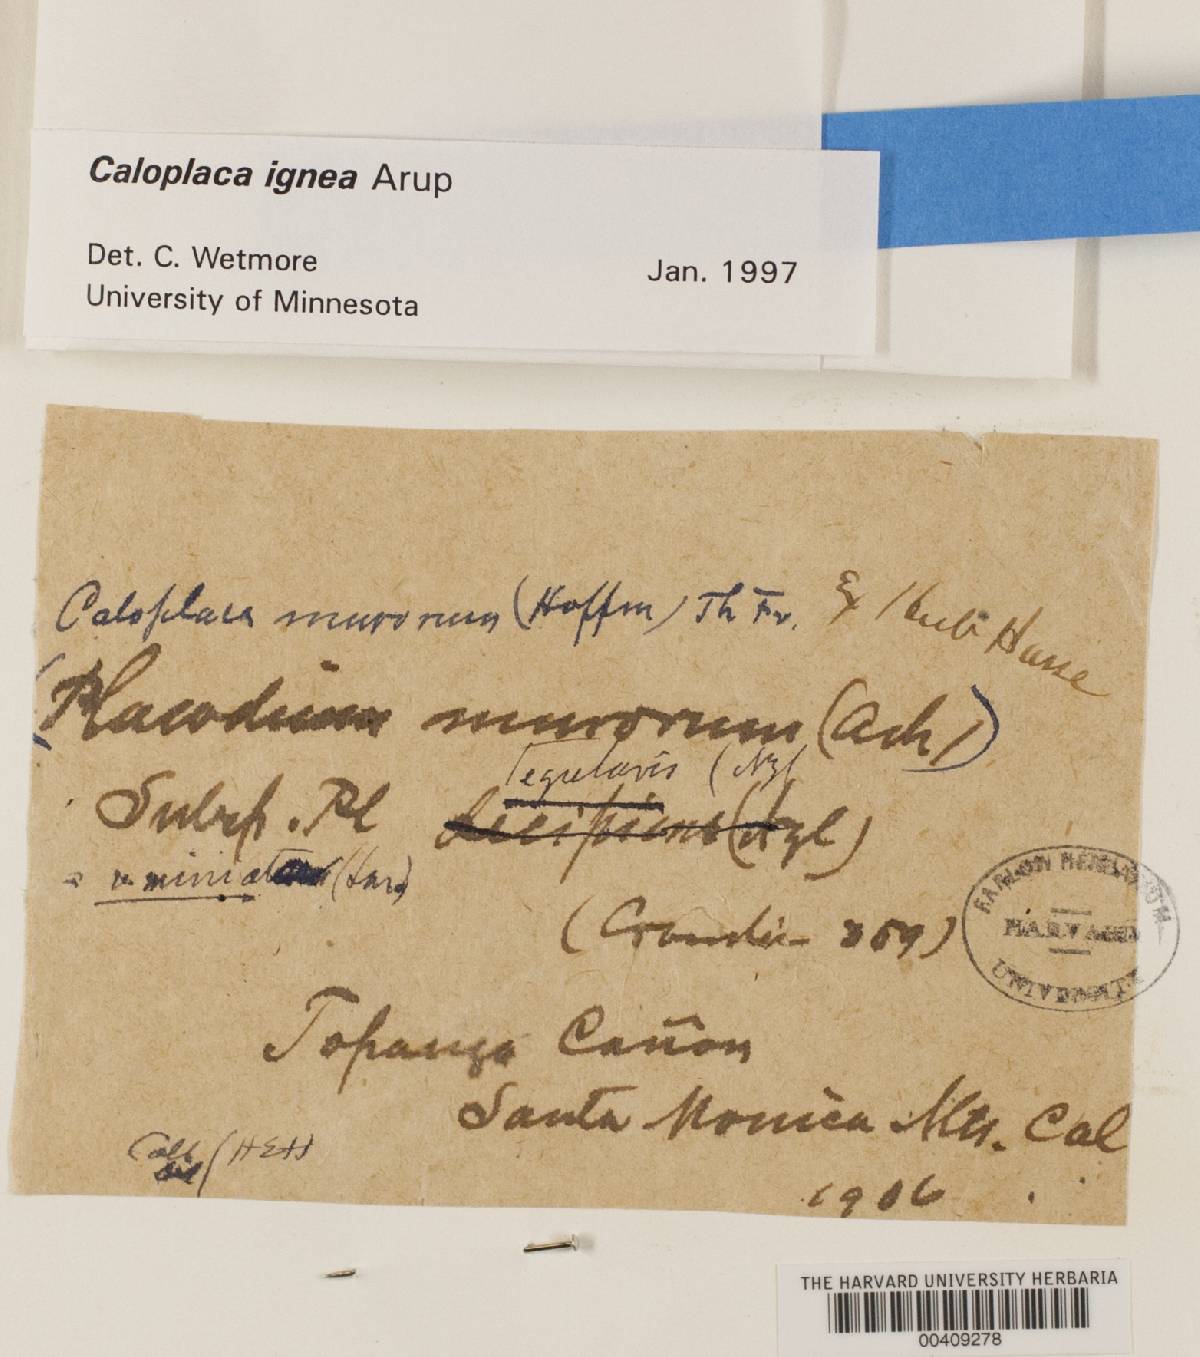 Caloplaca ignea Arup
Det. C. Wetmore
Jan. 1997
University of Minnesota
Caloplaca murorum (Hoffm) Th Fr. Ex Herb Hasse
(Placodium murorum (Ach))
Tegularis (Nyl
Subsp. Pl decipiens (Nyl)
v. miniatum
259)
Topanga Cañon
Santa Monica Mts. Cal
Coll (HEH
1906
FARLOW HERBARIUM
HARVARD
UNIVERSITY
THE HARVARD UNIVERSITY HERBARIA
00409278